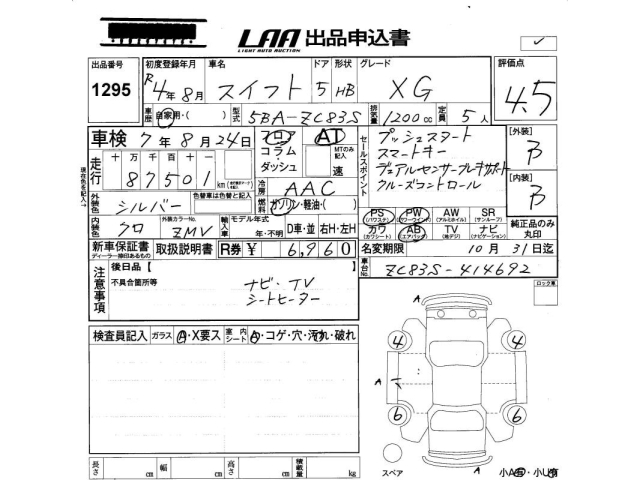 LAA 出品申込書
LIGHT AUTO AUCTION
出品番号 初度登録年月 車名 ドア 形状 グレード 評価点
1295 R 4年8月 スイフト 5 HB XG 4.5
車歴 自家用・( ) 型式 5BA-ZC83S 排気量 1200cc 定員 5人
車検 7年8月24日 フロア AT
コラム・ダッシュ MTのみ記入 速
セールスポイント プッシュスタート
スマートキー
デュアルセンサーブレーキサポート
クルーズコントロール
【外装】
B
【内装】
B
走行 十万千百十一
87501 km
冷房 AAC
外装色 シルバー 色替車は色替と記入 燃料 ガソリン・軽油・( )
内装色 クロ 外装カラーNo. ZMV 輸入車 モデル年式 年・不明 D車・並 右H・左H
PS (パワステ) PW (パワーウインド) AW (アルミホイル) SR (サンルーフ)
カワ (カワシート) AB (エアバック) TV (地デジ) ナビ (ナビゲーション)
純正品のみ丸印
新車保証書 取扱説明書 R券 ¥ 6,960 名変期限 10月31日迄
ディーラー捺印あるもの
車台No. ZC83S-414692
注意事項 後日品【 】
不具合箇所等 ナビ・TV
シートヒーター
ロック車
検査員記入 ガラス A・X要ス 室内シート A・コゲ・穴・汚れ・破れ
A
4 4
A
6 6
A
スペア
長さ cm 幅 cm 高さ cm 積載量 kg 小A有・小U有